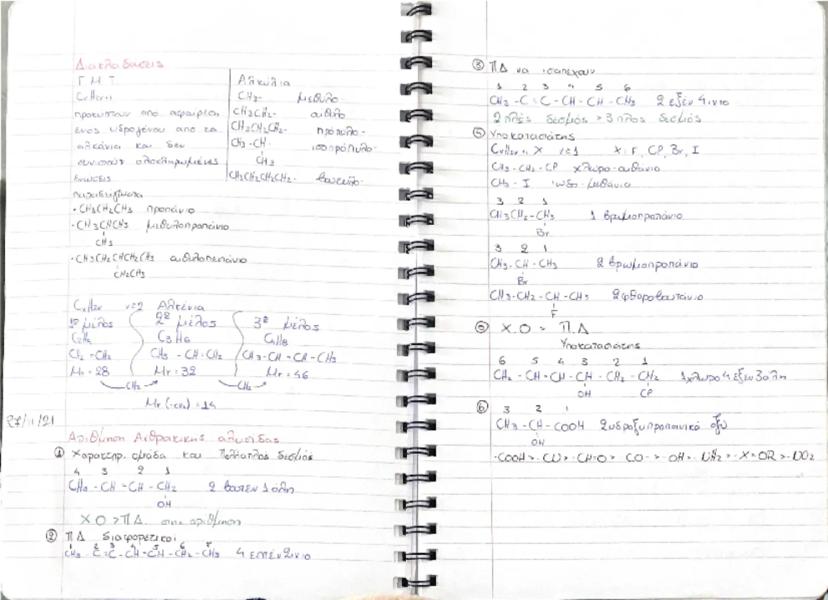 Διακλαδώσεις
Γ.Μ.Τ
CνH2ν+1
προκύπτουν από αφαίρεση
ενός υδρογόνου από τα
αλκάνια και δεν
ολοκληρωμένες
ενώσεις
Αλκύλια
CH3- μεθυλο
CH3CH2- αιθυλο
CH3CH2CH2- προπυλο-
CH3-CH- ισοπροπυλο-
CH3
CH3CH2CH2CH2- βουτυλο-
παραδείγματα
• CH3CH2CH3 προπάνιο
• CH3CHCH3 μεθυλοπροπάνιο
CH3
• CH3CH2CHCH2CH3 αιθυλοπεντάνιο
CH2CH3
CνH2ν ν≥2 Αλκένια
1º μέλος 2º μέλος 3º μέλος
C2H4 C3H6 C4H8
CH2=CH2 CH3-CH=CH2 CH3-CH=CH-CH3
Mr=28 Mr=32 Mr=46
-CH2- -CH2-
Mr(-CH2-)=14
27/11/21
Αρίθμηση Ανθρακικής αλυσίδας
① Χαρακτηρ. ομάδα και Πολλαπλός δεσμός
4 3 2 1
CH3-CH=CH-CH2 2 βουτεν 1 όλη
OH
Χ.Ο > Π.Δ. στην αρίθμηση
② Π.Δ διαφορετικοί
1 2 3 4 5 6 7
CH3-C≡C-CH=CH-CH2-CH3 4 επτεν 2 ινιο
③ Π.Δ να ισαπέχουν
1 2 3 4 5 6
CH3-C≡C-CH=CH-CH3 2 εξεν 4 ινιο
2πλός δεσμός > 3πλός δεσμός
Υποκαταστάτης
CνH2ν+1X ν≥1 X: F, Cl, Br, I
CH3-CH2-Cl χλωρο-αιθάνιο
CH3-I ιωδο-μεθάνιο
3 2 1
CH3CH2-CH2 1 βρωμοπροπάνιο
Br
3 2 1
CH3-CH-CH3 2 βρωμοπροπάνιο
Br
CH3-CH2-CH-CH3 2 φθοροβουτάνιο
F
Χ.Ο > Π.Δ
Υποκαταστάτης
6 5 4 3 2 1
CH3-CH=CH-CH-CH2-CH2 1 χλωρο 4 εξεν 3 όλη
OH Cl
⑥
3 2 1
CH3-CH-COOH 2 υδροξυπροπανικό οξύ
OH